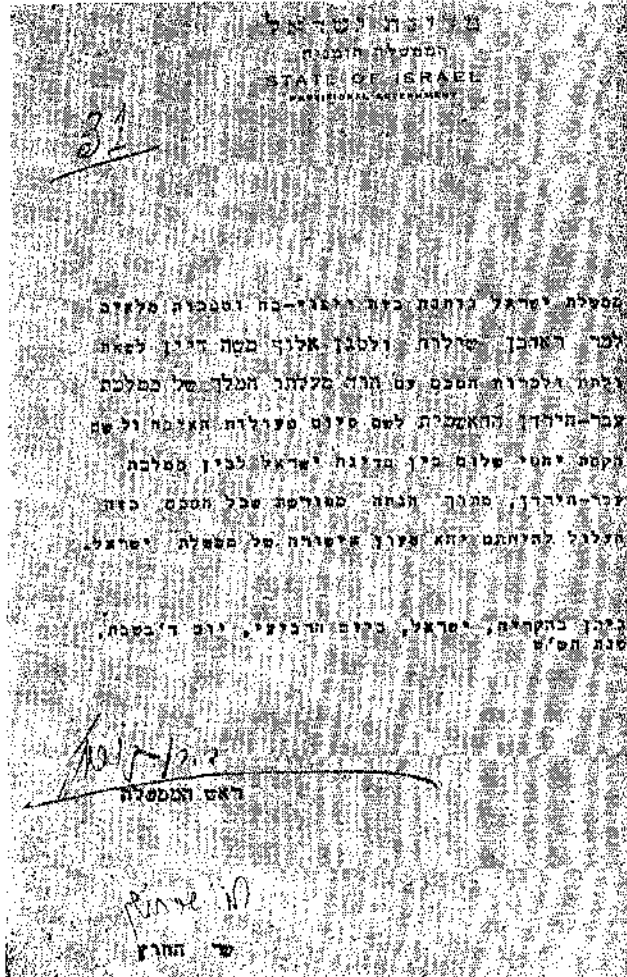 מדינת ישראל
הממשלה הזמנית
STATE OF ISRAEL
PROVISIONAL GOVERNMENT
31
ממשלת ישראל נותנת בזה ייפוי-כח וסמכות מלאים
למר ראובן שילוח ולסגן אלוף משה דיין לשאת
ולתת ולכרות הסכם עם הוד מעלתו המלך של ממלכת
עבר-הירדן ההאשמית לשם סיום פעולות האיבה ולשם
הקמת יחסי שלום בין מדינת ישראל לבין ממלכת
עבר-הירדן, מתוך הנחה מפורשת שכל הסכם כזה
העלול להיחתם יהא טעון אישורה של ממשלת ישראל.
ניתן בהקריה, ישראל, ביום הרביעי, יום ד' בשבת,
שנת
ד. בן גוריון
ראש הממשלה
שר החוץ